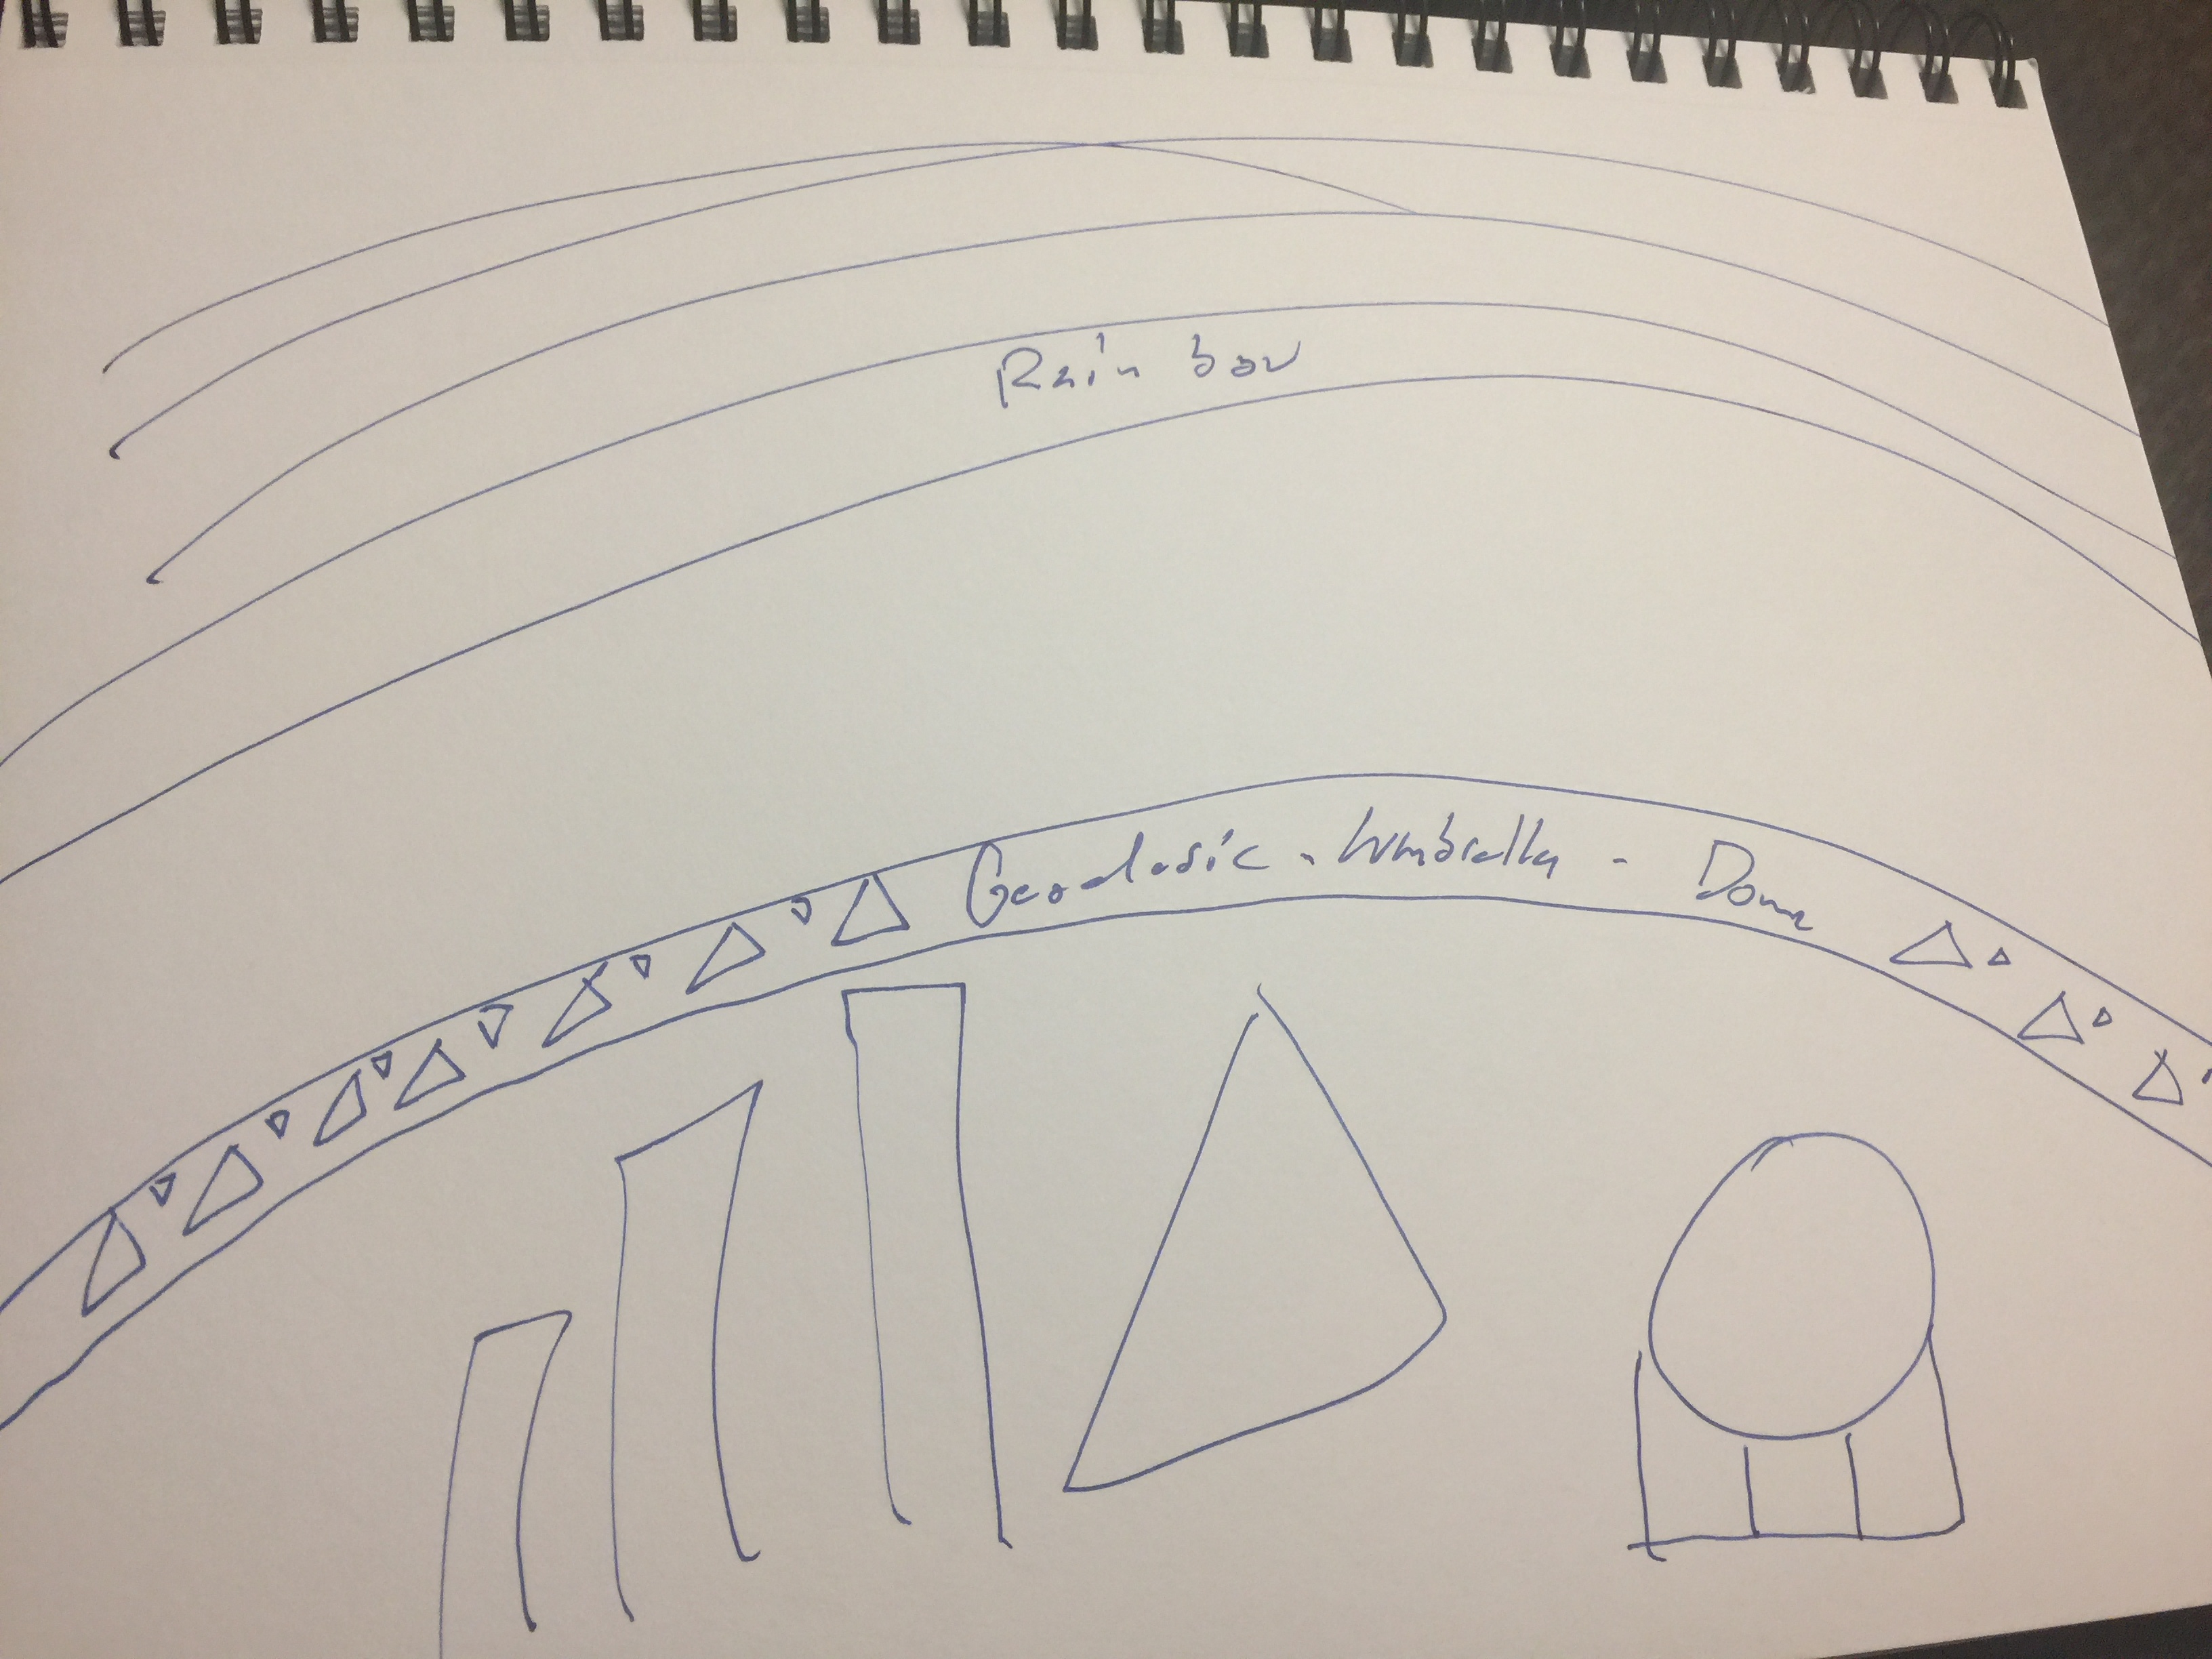 Rain bow
Geodesic - Umbrella - Dome